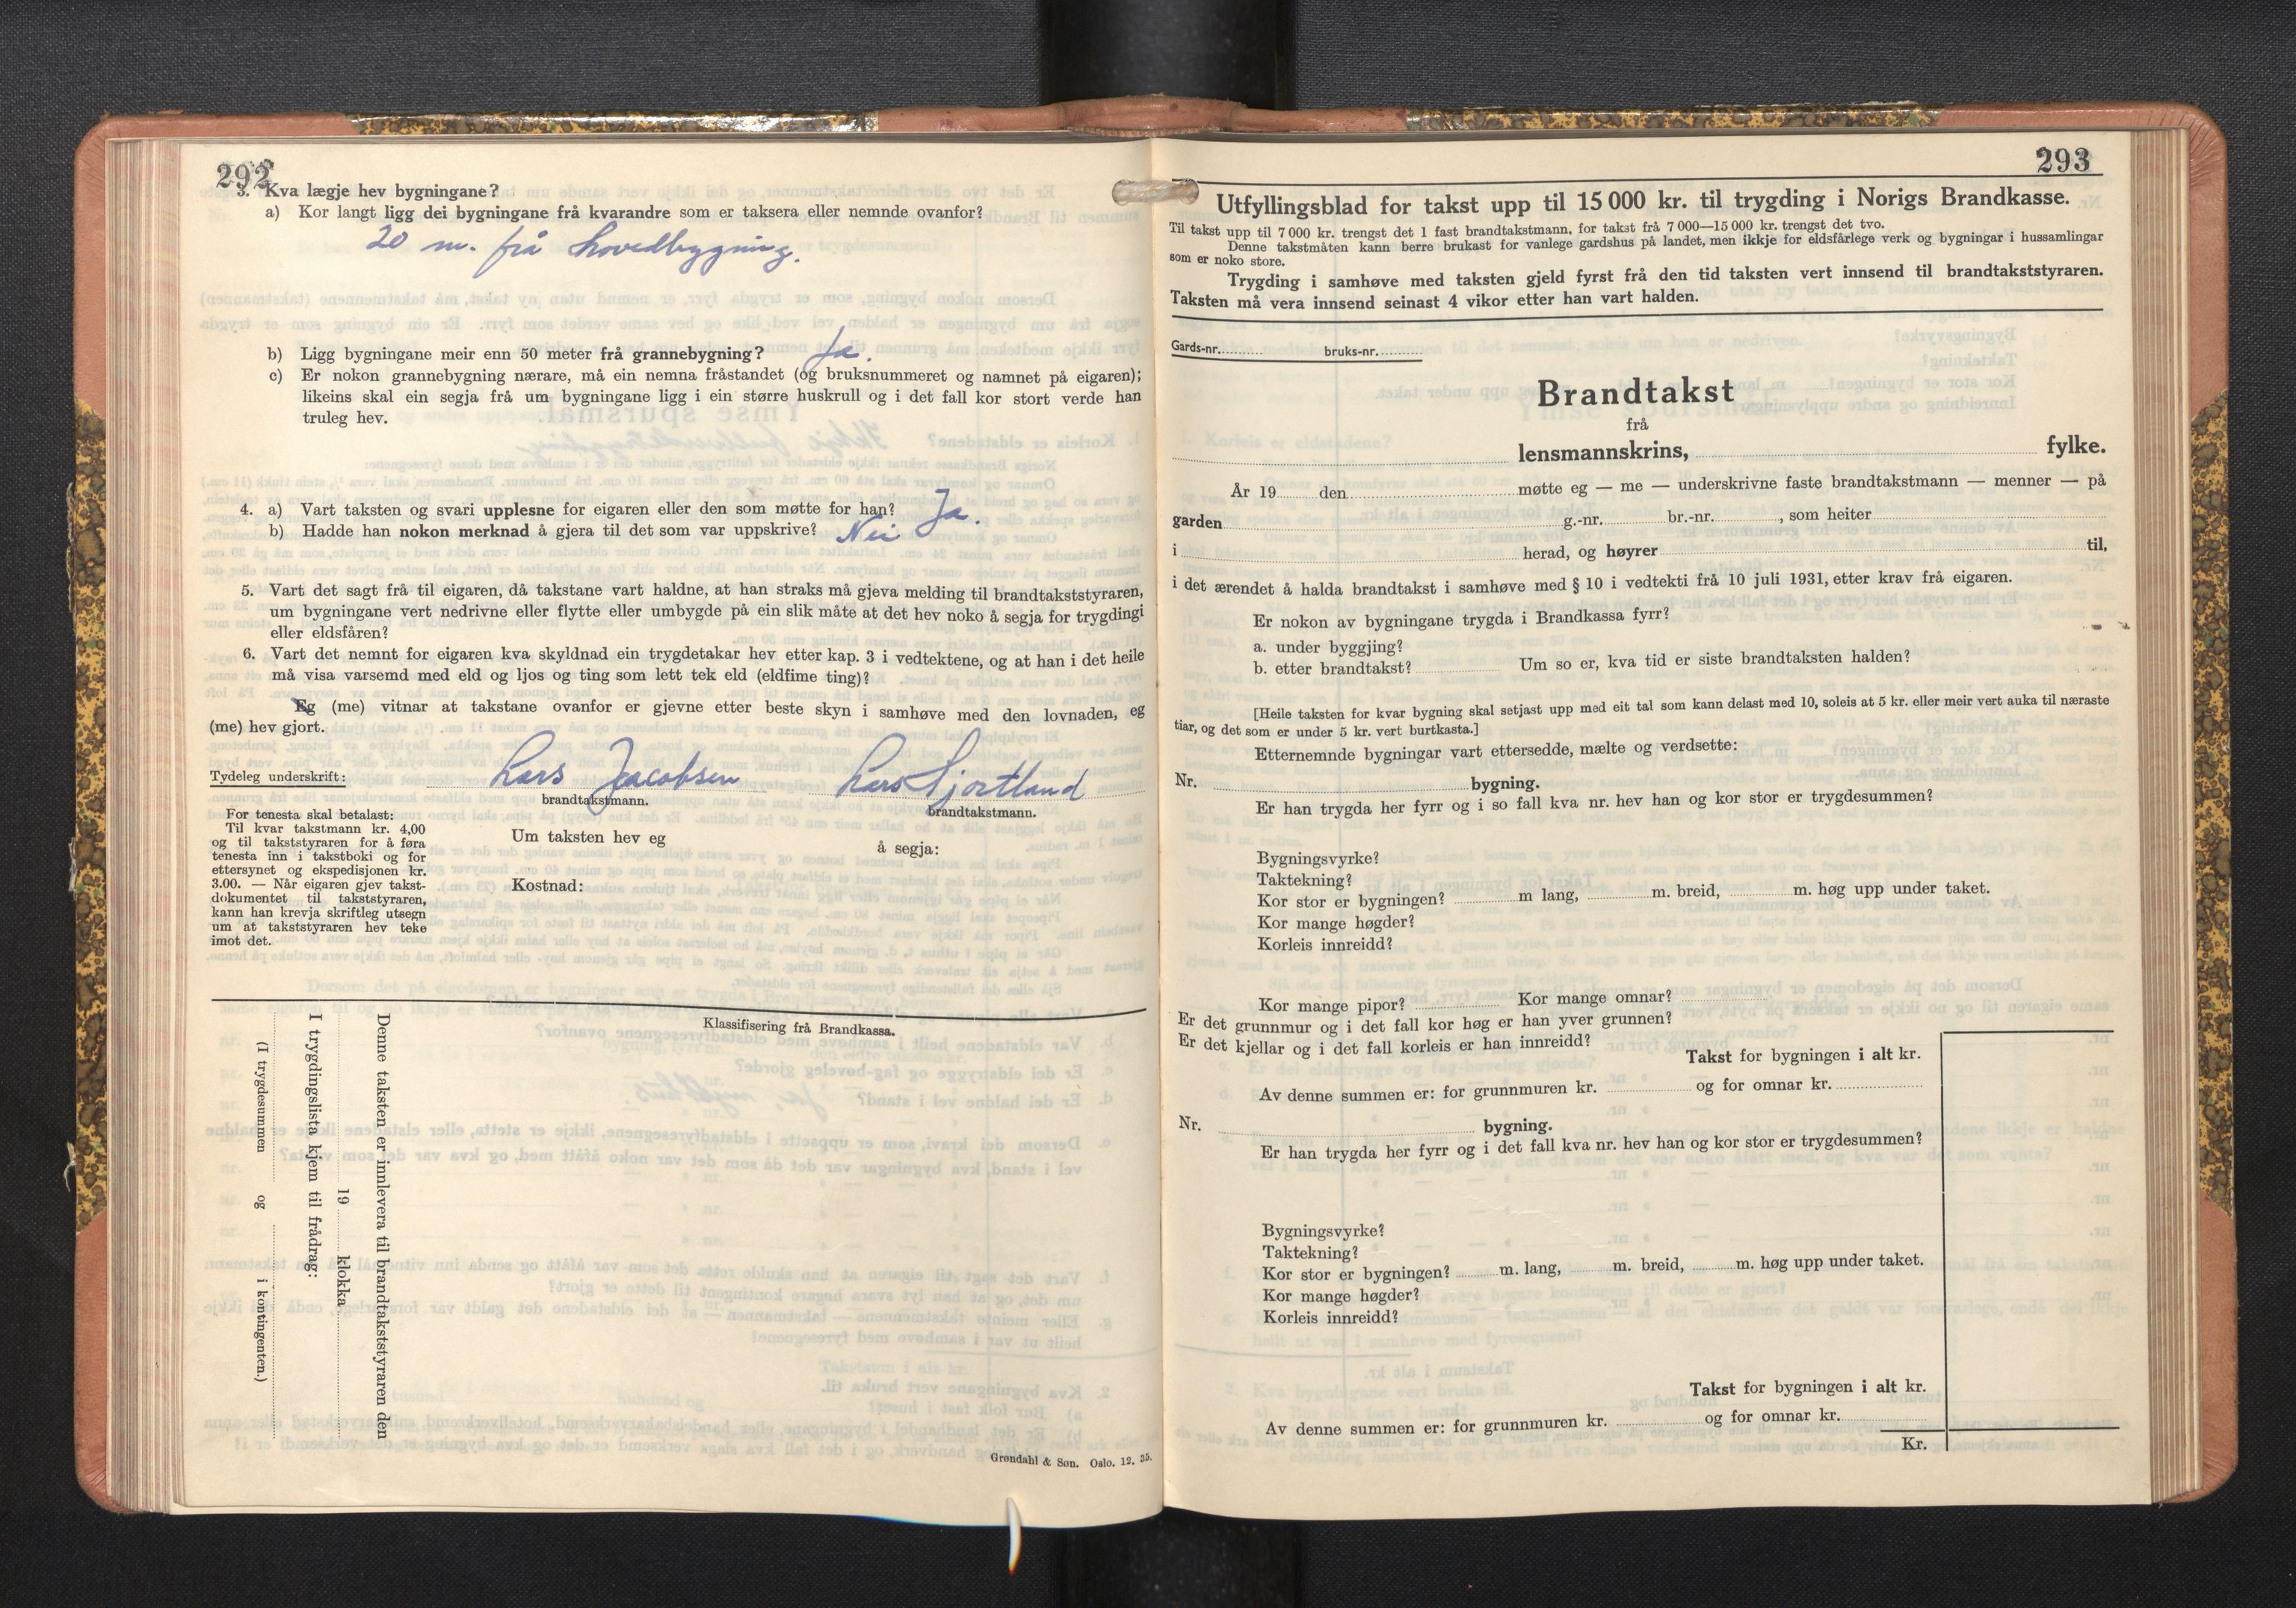 292
3. Kva lægje hev bygningane?
a) Kor langt ligg dei bygningane frå kvarandre som er taksera eller nemnde ovanfor?
20 m. frå hovedbygning.
b) Ligg bygningane meir enn 50 meter frå grannebygning? Ja.
c) Er nokon grannebygning nærare, må ein nemna fråstandet (og bruksnummeret og namnet på eigaren);
likeins skal ein segja frå um bygningane ligg i ein større huskrull og i det fall kor stort verde han
truleg hev.
4. a) Vart taksten og svari upplesne for eigaren eller den som møtte for han? Ja.
b) Hadde han nokon merknad å gjera til det som var uppskrive? Nei
5. Vart det sagt frå til eigaren, då takstane vart haldne, at han straks må gjeva melding til brandtakststyraren,
um bygningane vert nedrivne eller flytte eller umbygde på ein slik måte at det hev noko å segja for trygdingi
eller eldsfåren?
6. Vart det nemnt for eigaren kva skyldnad ein trygdetakar hev etter kap. 3 i vedtektene, og at han i det heile
må visa varsemd med eld og ljos og ting som lett tek eld (eldfime ting)?
Eg (me) vitnar at takstane ovanfor er gjevne etter beste skyn i samhøve med den lovnaden, eg
(me) hev gjort.
Tydeleg underskrift: Lars Jacobsen Lars
brandtakstmann. brandtakstmann.
For tenesta skal betalast:
Til kvar takstmann kr. 4,00
og til takststyraren for å føra
tenesta inn i takstboki og for
ettersynet og ekspedisjonen kr.
3.00. — Når eigaren gjev takst-
dokumentet til takststyraren,
kann han krevja skriftleg utsegn
um at takststyraren hev teke
imot det.
Um taksten hev eg å segja:
Kostnad:
Klassifisering frå Brandkassa.
Denne taksten er innlevera til brandtakststyraren den
19 klokka
I trygdingslista kjem til frådrag:
(I trygdesummen og i kontingenten.)
Grøndahl & Søn. Oslo. 12. 35.
293
Utfyllingsblad for takst upp til 15 000 kr. til trygding i Norigs Brandkasse.
Til takst upp til 7 000 kr. trengst det 1 fast brandtakstmann, for takst frå 7 000—15 000 kr. trengst det tvo.
Denne takstmåten kann berre brukast for vanlege gardshus på landet, men ikkje for eldsfårlege verk og bygningar i hussamlingar
som er noko store.
Trygding i samhøve med taksten gjeld fyrst frå den tid taksten vert innsend til brandtakststyraren.
Taksten må vera innsend seinast 4 vikor etter han vart halden.
Gards-nr. bruks-nr.
Brandtakst
frå
lensmannskrins, fylke.
År 19 den møtte eg — me — underskrivne faste brandtakstmann — menner — på
garden g.-nr. br.-nr. , som heiter
i herad, og høyrer til,
i det ærendet å halda brandtakst i samhøve med § 10 i vedtekti frå 10 juli 1931, etter krav frå eigaren.
Er nokon av bygningane trygda i Brandkassa fyrr?
a. under byggjing?
b. etter brandtakst? Um so er, kva tid er siste brandtaksten halden?
[Heile taksten for kvar bygning skal setjast upp med eit tal som kann delast med 10, soleis at 5 kr. eller meir vert auka til næraste
tiar, og det som er under 5 kr. vert burtkasta.]
Etternemnde bygningar vart ettersedde, mælte og verdsette:
Nr. bygning.
Er han trygda her fyrr og i so fall kva nr. hev han og kor stor er trygdesummen?
Bygningsvyrke?
Taktekning?
Kor stor er bygningen? m lang, m. breid, m. høg upp under taket.
Kor mange høgder?
Korleis innreidd?
Kor mange pipor? Kor mange omnar?
Er det grunnmur og i det fall kor høg er han yver grunnen?
Er det kjellar og i det fall korleis er han innreidd?
Takst for bygningen i alt kr.
Av denne summen er: for grunnmuren kr. og for omnar kr.
Nr. bygning.
Er han trygda her fyrr og i det fall kva nr. hev han og kor stor er trygdesummen?
Bygningsvyrke?
Taktekning?
Kor stor er bygningen? m. lang, m. breid, m. høg upp under taket.
Kor mange høgder?
Korleis innreidd?
Takst for bygningen i alt kr.
Av denne summen er: for grunnmuren kr. og for omnar kr.
Kr.